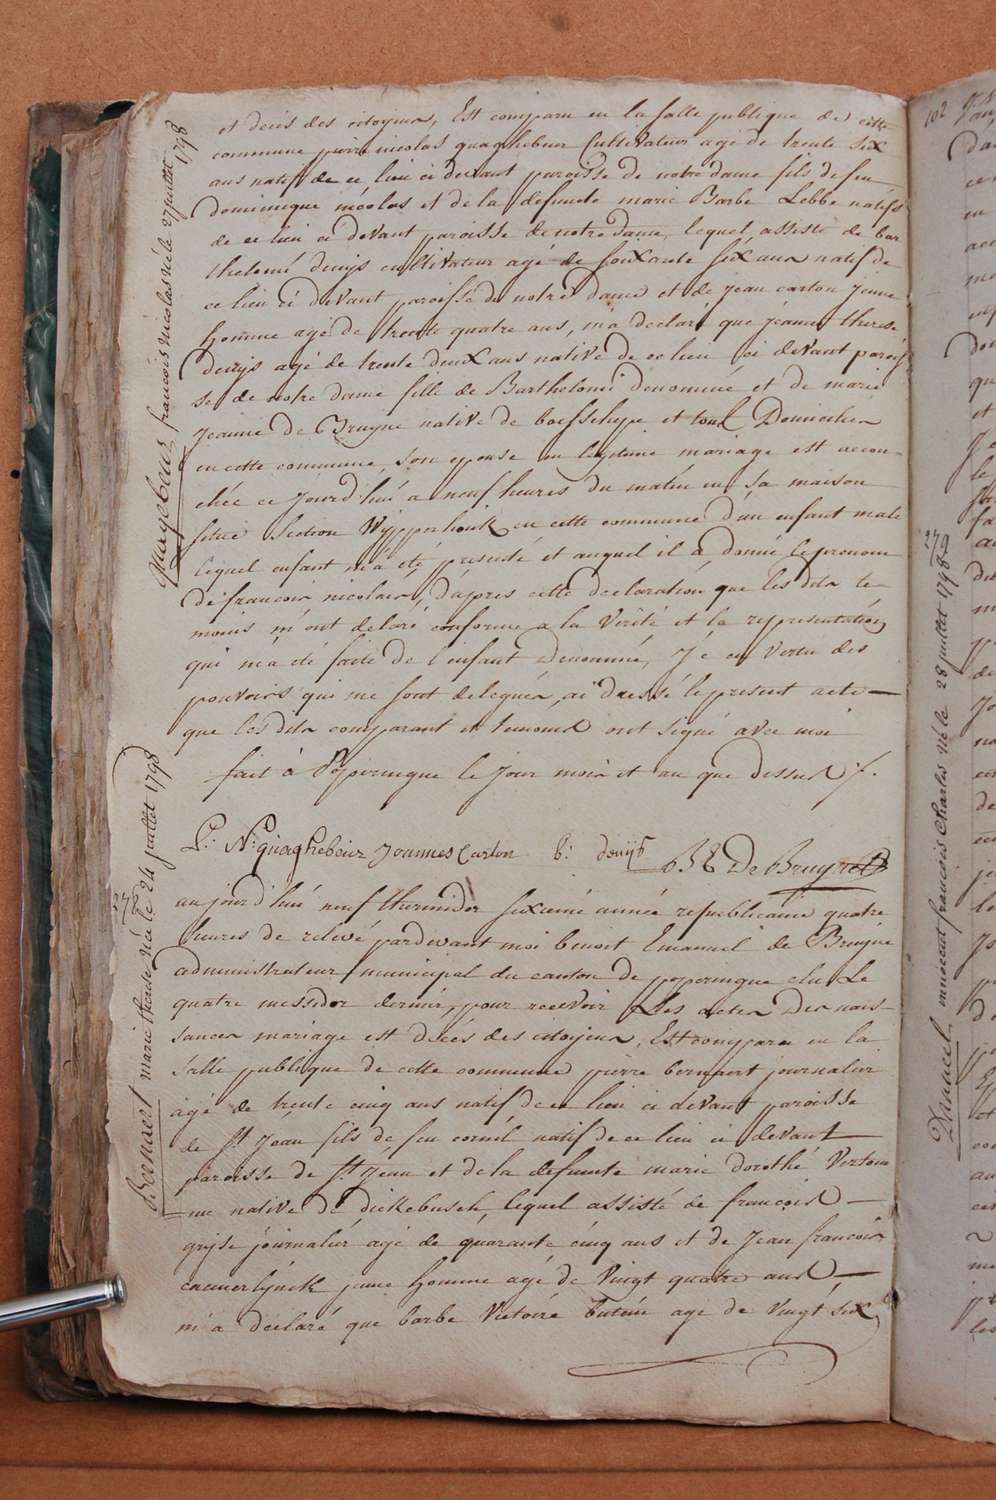 et décès des citoyens, Est comparu en la salle publique de cette
commune pierre nicolas quaghebeur Cultivateur agé de trente six
ans natif de ce lieu ci devant paroisse de notre dame fils de feu
dominique nicolas et de la defunte marie Barbe Lebbe natifs
de ce lieu ci devant paroisse de notre Dame, lequel assisté de bar
thelomé denijs cultivateur agé de soixante six ans natif de
ce lieu ci devant paroisse de notre dame et de Jean carton Jeune
homme agé de trente quatre ans, m'a declaré que jeanne therese
denijs agé de trente deux ans native de ce lieu ci devant parois
se de notre dame fille de Barthelomé denommé et de marie
Jeanne De Bruyne native de boesschepe et tous Domiciliés
en cette commune, son epouse en legitime mariage est accou
chée ce Jourd'hui a neuf heures du matin en sa maison
situé Section en cette commune d'un enfant male
lequel enfant m'a été presenté et auquel il a donné le prenom
de francois nicolais, d'apres cette declaration que les dits te
moins m'ont delaré conforme a la Vérité et la representation
qui m'a été faite de l'enfant Denommé, J'é en vertu des
pouvoirs qui me sont delegués, ai dressé le present acte
que les dits comparant et temoins ont signé avec moi
fait à Poperingue le Jour mois et an que dessus /.
P: N: Quaghebeur Joannes Carton b: denijs B E De Bruyne
au jourd'hui neuf thermidor sixieme année republicaine quatre
heures de relevé pardevant moi benoit Emanuel de Bruyne
administrateur municipal du canton de poperingue elu Le
quatre messidor dernier, pour recevoir Les actes Des nais
sances mariage est décés des citoyens, Est comparu en la
salle publique de cette commune pierre bernaert journalier
agé de trente cinq ans natif de ce lieu ci devant paroisse
de St Jean fils de feu cornil natif de ce lieu ci devant
paroisse de St Jean et de la defunte marie dorothé Vertom
me native de dickebusch, lequel assisté de francois
gryse journalier agé de quarante cinq ans et de Jean francois
caemerlynck jeune homme agé de Vingt quatre ans
m'a déclaré que barbe Victoire agé de Vingt six
Quagebeur francois nicolas né le 27 juillet 1798
27
Bernaert marie therese née le 24 juillet 1798
102
27
Danneel innocent francois Charles né le 28 juillet 1798